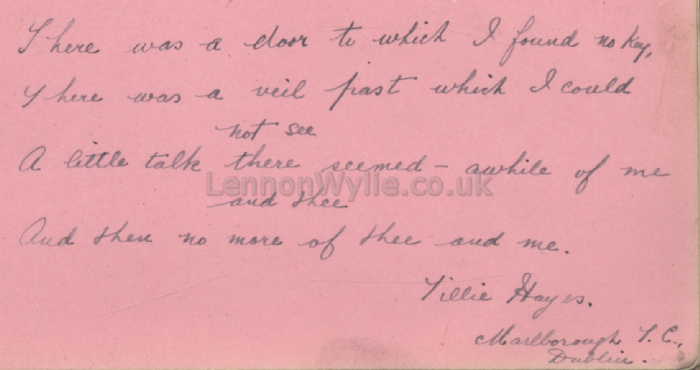 There was a door to which I found no key,
There was a veil past which I could
not see
A little talk there seemed - awhile of me
LennonWylie.co.uk
and thee
And then no more of thee and me.
Tillie Hayes.
Marlborough T. C.,
Dublin.